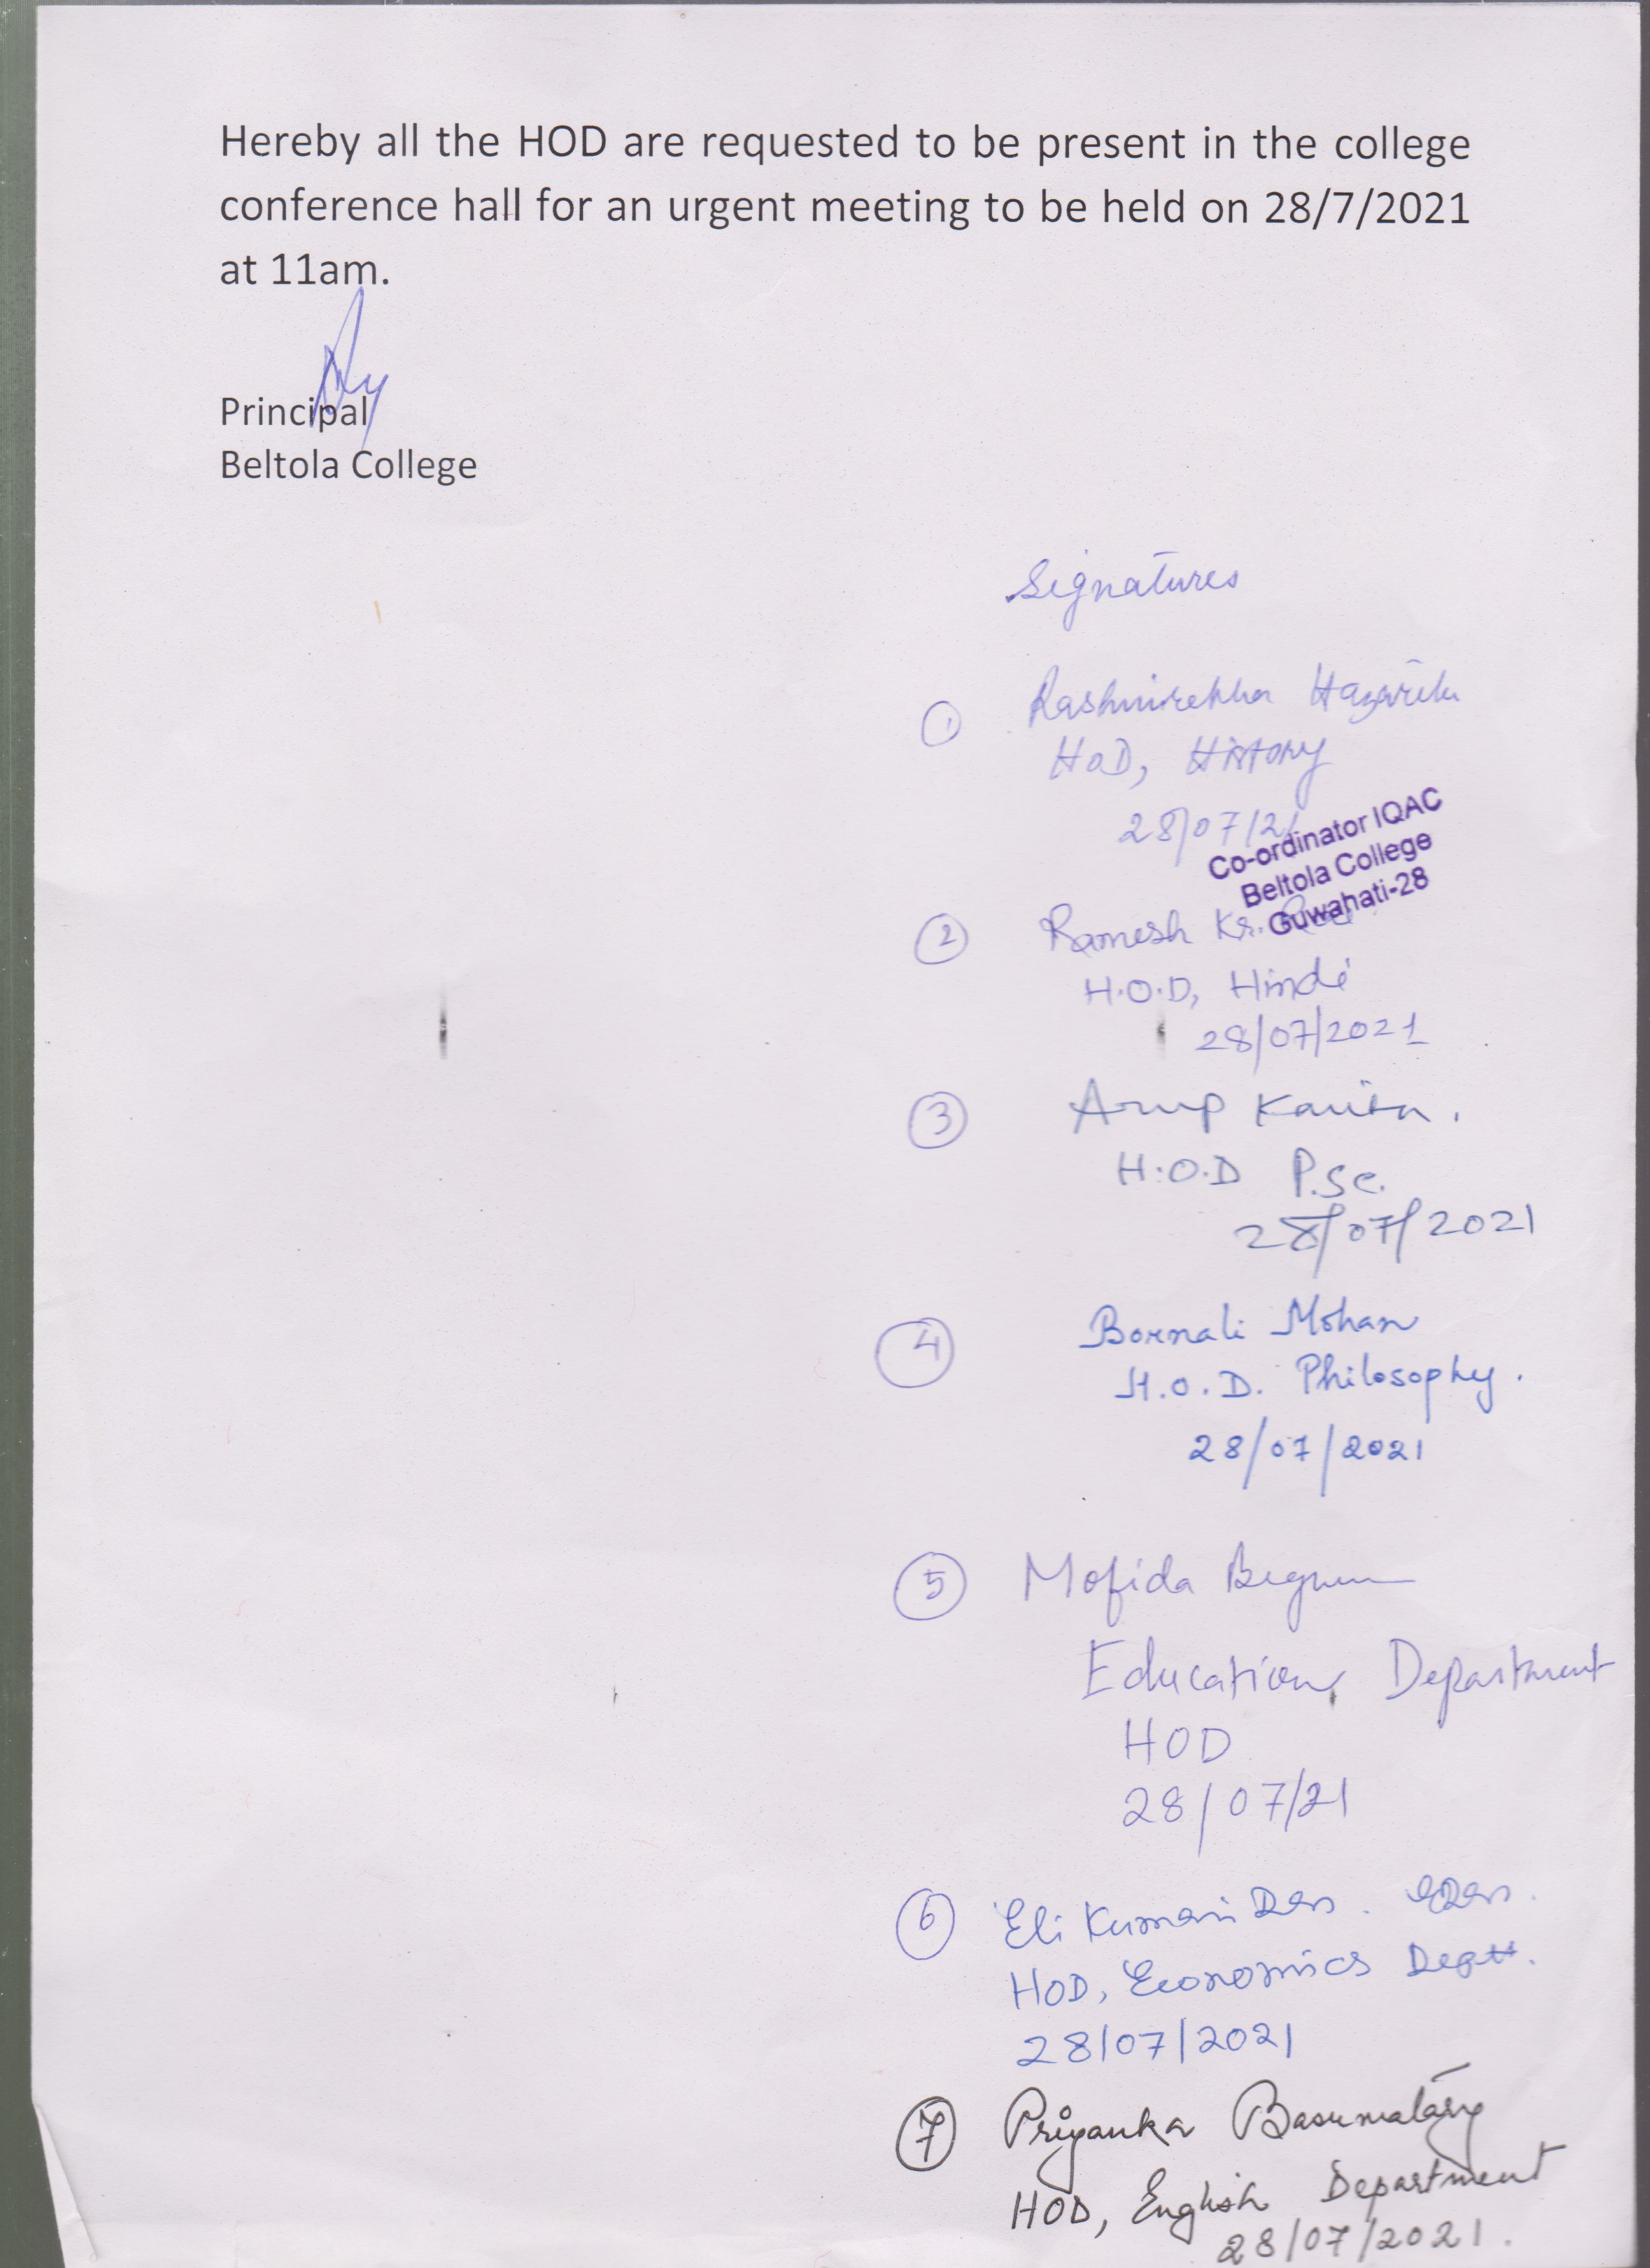 Hereby all the HOD are requested to be present in the college
conference hall for an urgent meeting to be held on 28/7/2021
at 11am.
Principal
Beltola College
Signatures
1 Rashmirekha Hazarika
HoD, History
28/07/21
Co-ordinator IQAC
Beltola College
Guwahati-28
2 Ramesh Kr.
H.O.D, Hindi
28/07/2021
3 Arup Kalita.
H.O.D P.Sc.
28/07/2021
4 Bornali Mohan
H.O.D. Philosophy.
28/07/2021
5 Mofida Begum
Education Department
HOD
28/07/21
6 Eli Kumari Das.
HOD, Economics Deptt.
28/07/2021
7 Priyanka Basumatary
HOD, English Department
28/07/2021.